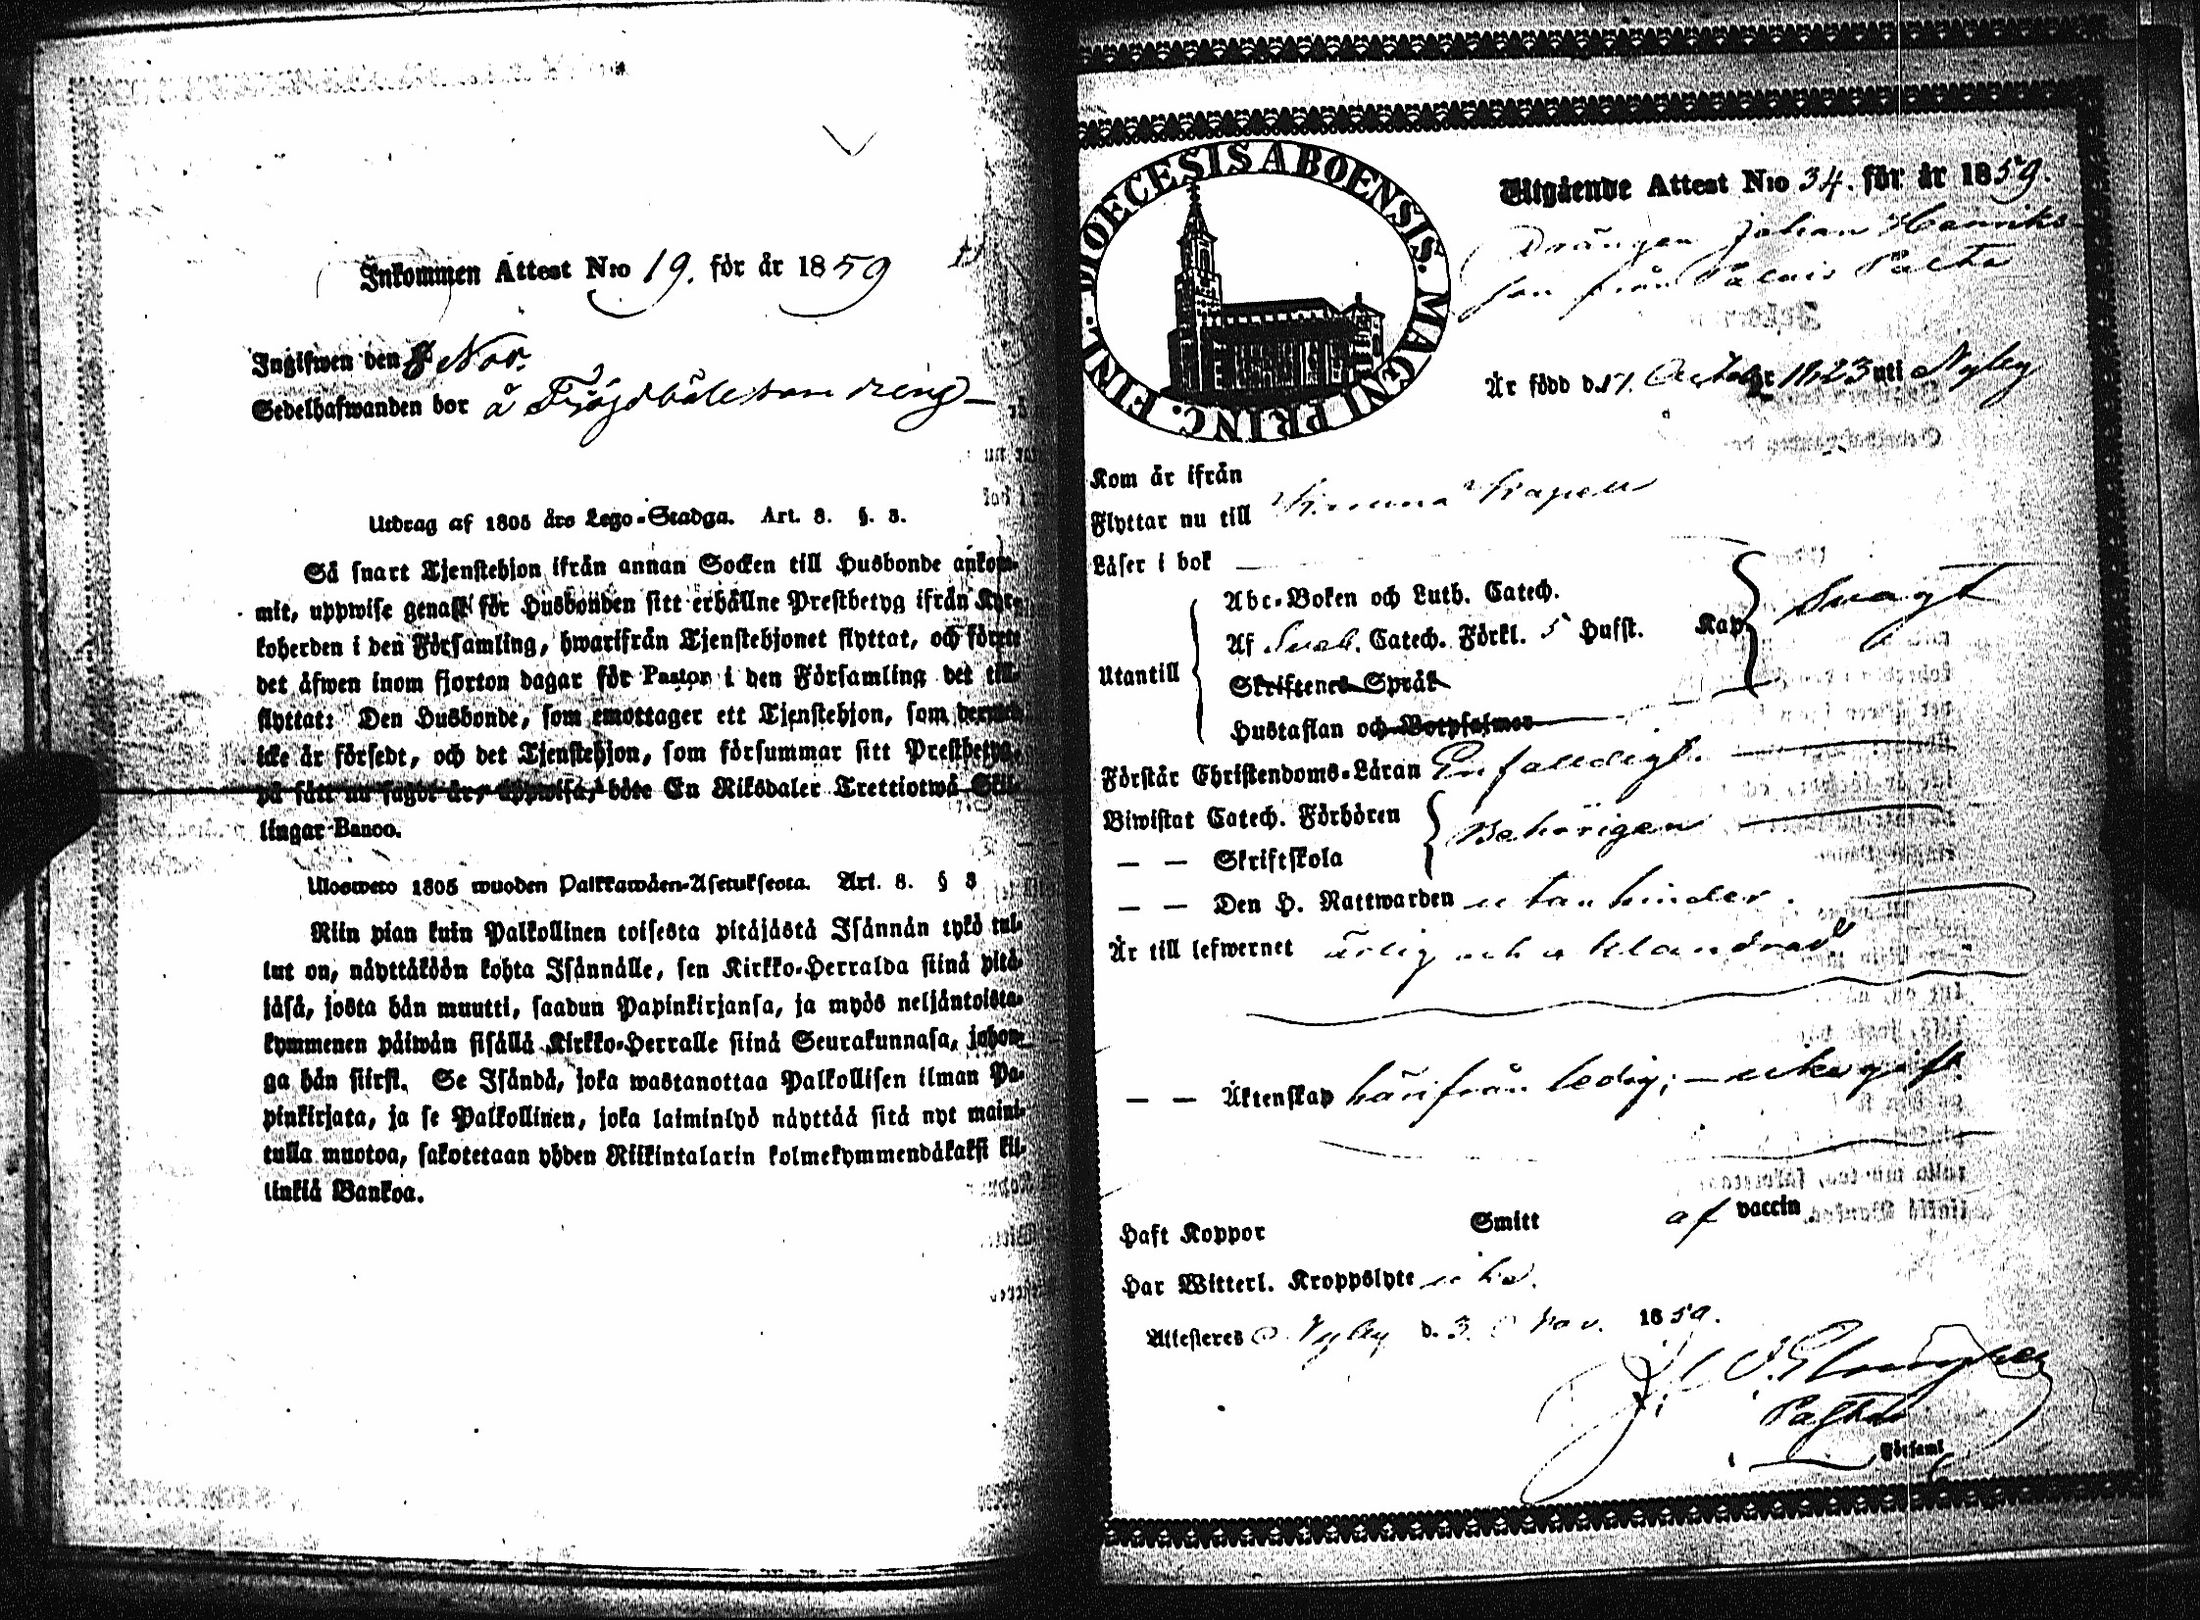 Inkommen Attest N:o 19. för år 1859
Ingifwen den 8 Nov.
Sedelhafwanden bor å Fröjdböle som dreng
Utdrag af 1805 års Lego-Stadga. Art. 8. §. 3.
Så snart Tjenstehjon ifrån annan Socken till Husbonde ankom-
mit, uppwise genast för Husbonden sitt erhållne Prestbetyg ifrån Kyr-
koherden i den Församling, hwarifrån Tjenstehjonet flyttat, och förete
det äfwen inom fjorton dagar för Pastor i den Församling det till-
flyttat: Den Husbonde, som emottager ett Tjenstehjon, som dermed
icke är försedt, och det Tjenstehjon, som försummar sitt Prestbetyg,
på sått nu sagdt är, uppwisa, böte En Riksdaler Trettiotwå Skil-
lingar Banco.
Ulosweto 1805 wuoden Palkkawäen-Asetuksesta. Art. 8. § 3
Niin pian kuin Palkollinen toisesta pitäjästä Isännän tykö tul-
lut on, näyttäköön kohta Isännälle, sen Kirkko-Herralda siinä pitä-
jäsä, josta hän muutti, saadun Papinkirjansa, ja myös neljäntoista-
kymmenen päiwän sisällä Kirkko-Herralle siinä Seurakunnasa, johon-
ga hän siirst. Se Isändä, joka wastanottaa Palkollisen ilman Pa-
pinkirjata, ja se Palkollinen, joka laiminlyö näyttää sitä nyt maini-
tulla muotoa, sakotetaan yhden Riikintalarin kolmekymmendäkaksi kil-
linkiä Bankoa.
DIOECESIS ABOENSIS. MAGNI PRINC. FINL.
Utgående Attest N:o 34. för år 1859.
Drängen Johan Henriks
son från
Är född d. 17. October 1823 uti Nyby
Kom år ifrån
Flyttar nu till Kimito Kapell
Läser i bok
Utantill
Abc-Boken och Luth. Catech.
Af Sveb. Catech. Förkl. 5 Hufst. Kap Svagt
Skriftenes Språk
Hustaflan och Botpsalmer
Förstår Christendoms-Läran Enfaldigt.
Biwistat Catech. Förhören Behörigen
— — Skriftskola
— — Den H. Nattwarden utan hinder.
Är till lefwernet ärlig och oklandrad
— — Äktenskap härifrån ledig; — icke gift.
Haft Koppor Smitt af vaccin
Har Witterl. Kroppslyte icke.
Attesteres Nyby d. 3 Nov. 1859.
Pastor
Församl